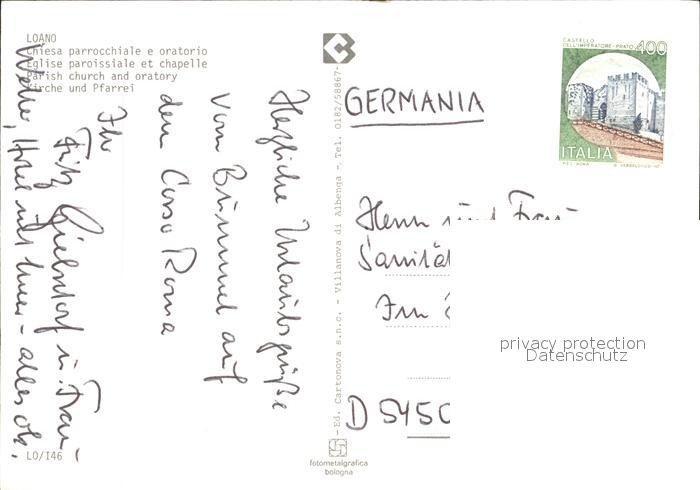 LOANO
Chiesa parrocchiale e oratorio
Eglise paroissiale et chapelle
Parish church and oratory
Kirche und Pfarrei
Herzliche Urlaubsgrüße
vom Bummel auf
dem Corso Roma
Ihr
Fritz u. Frau
Wetter, Hotel und Meer - alles ok.
LO/I46
- Ed. Cartonova s.n.c. - Villanova di Albenga - Tel. 0182/58867-
fotometalgrafica
bologna
CASTELLO
DELL'IMPERATORE-PRATO 400
ITALIA
GERMANIA
Herrn und Frau
Sanität
D 5450
privacy protection
Datenschutz